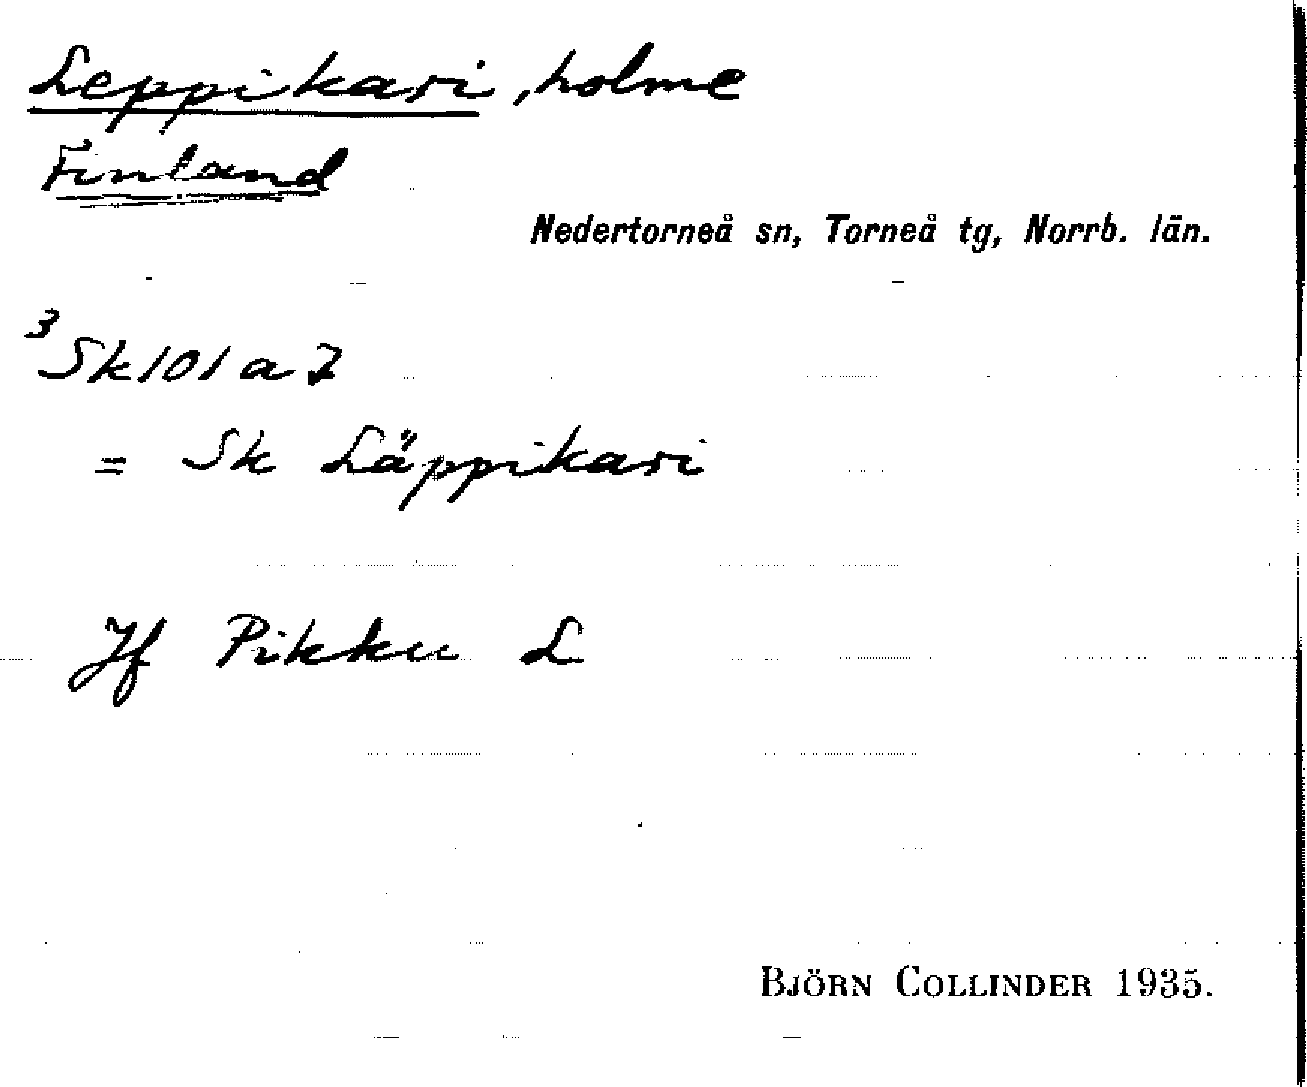 Leppikari, holme
Finland
Nedertorneå sn, Torneå tg, Norrb. län.
³Sk101a7
= Sk Läppikari
Jf Pikku L
BJÖRN COLLINDER 1935.